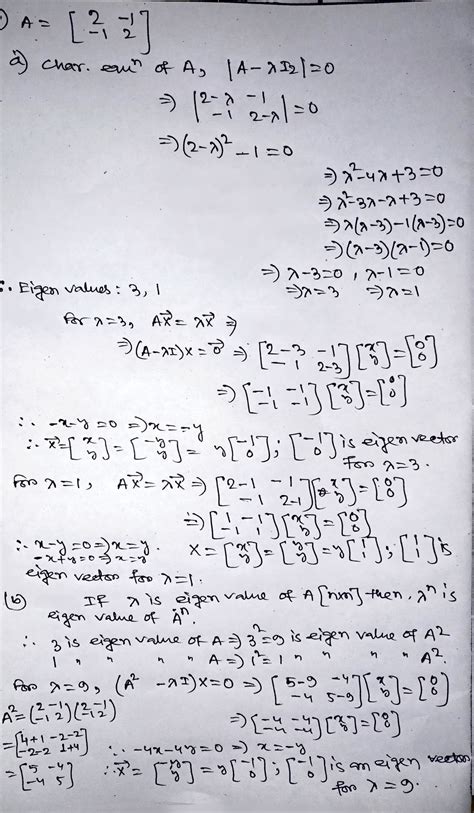 ) A = [2 -1; -1 2]
a) Char. equⁿ of A, |A-λI₂|=0
⇒ |2-λ -1; -1 2-λ|=0
⇒(2-λ)²-1=0
⇒λ²-4λ+3=0
⇒λ²-3λ-λ+3=0
⇒λ(λ-3)-1(λ-3)=0
⇒(λ-3)(λ-1)=0
⇒λ-3=0, λ-1=0
∴ Eigen values: 3, 1 ⇒λ=3 ⇒λ=1
For λ=3, AX⃗=λX⃗ ⇒
⇒(A-λI)X=0⃗ ⇒ [2-3 -1; -1 2-3][x; y]=[0; 0]
⇒[-1 -1; -1 -1][x; y]=[0; 0]
∴ -x-y=0 ⇒x=-y
∴ X⃗=[x; y]=[-y; y]=y[-1; 0]; [-1; 0] is eigen vector
for λ=3.
For λ=1, AX⃗=λX⃗ ⇒[2-1 -1; -1 2-1][x; y]=[0; 0]
⇒[1 -1; -1 1][x; y]=[0; 0]
∴ x-y=0⇒x=y. X=[x; y]=[y; y]=y[1; 1]; [1; 1] is
-x+y=0⇒x=y
eigen vector for λ=1.
(b) If λ is eigen value of A[nxn] then, λⁿ is
eigen value of Aⁿ.
∴ 3 is eigen value of A⇒3²=9 is eigen value of A²
1 " " " " A⇒1²=1 " " " " A².
For λ=9, (A²-λI)X=0 ⇒ [5-9 -4; -4 5-9][x; y]=[0; 0]
A²=(2 -1; -1 2)(2 -1; -1 2)
⇒[-4 -4; -4 -4][x; y]=[0; 0]
=[4+1 -2-2; -2-2 1+4] ∴ -4x-4y=0 ⇒ x=-y
=[5 -4; -4 5] ∴X⃗=[-y; y]=y[-1; 0]; [-1; 0] is an eigen vector
for λ=9.